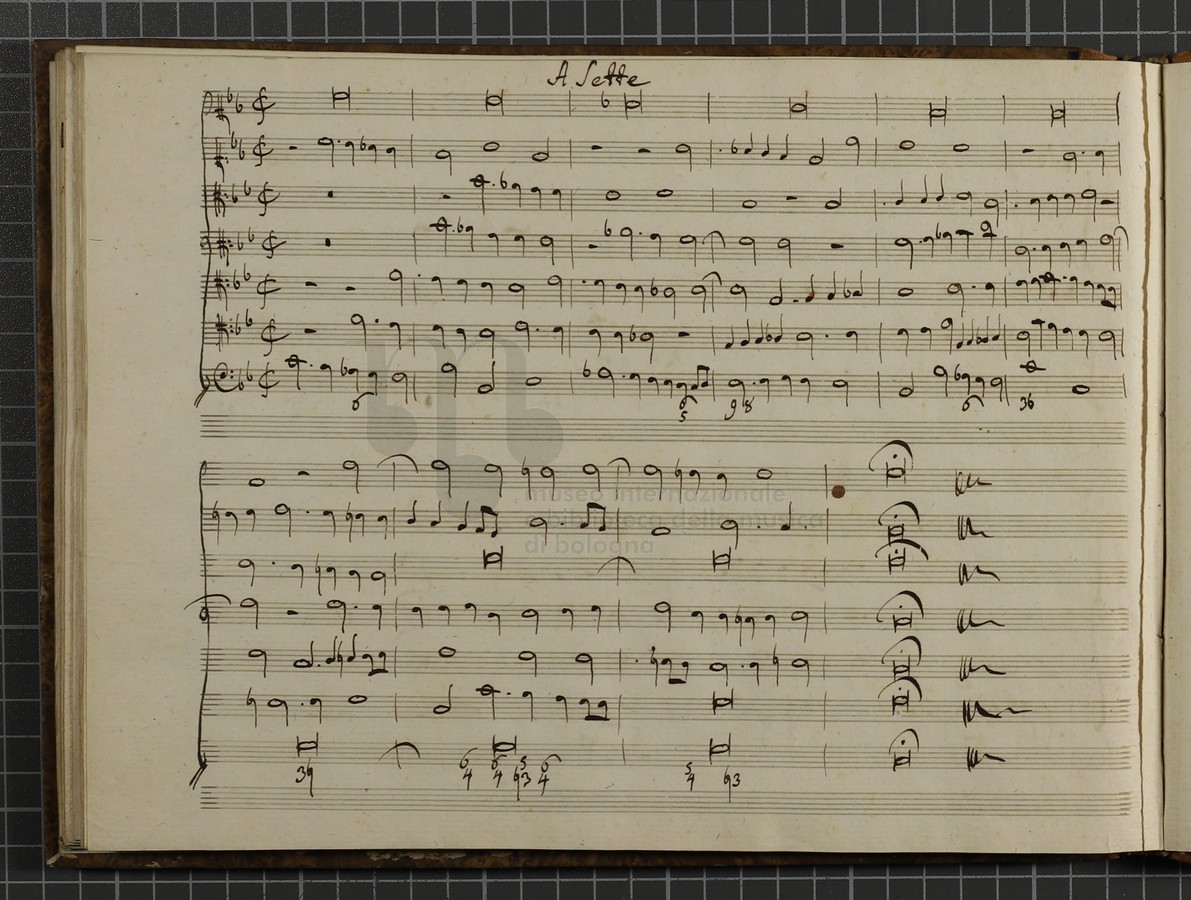 A Sette
6
6
5
9 8
6
36
museo internazionale
e biblioteca della musica
di bologna
3♮
6 6 5 6
4 4 ♮3 4
5
4 ♮3